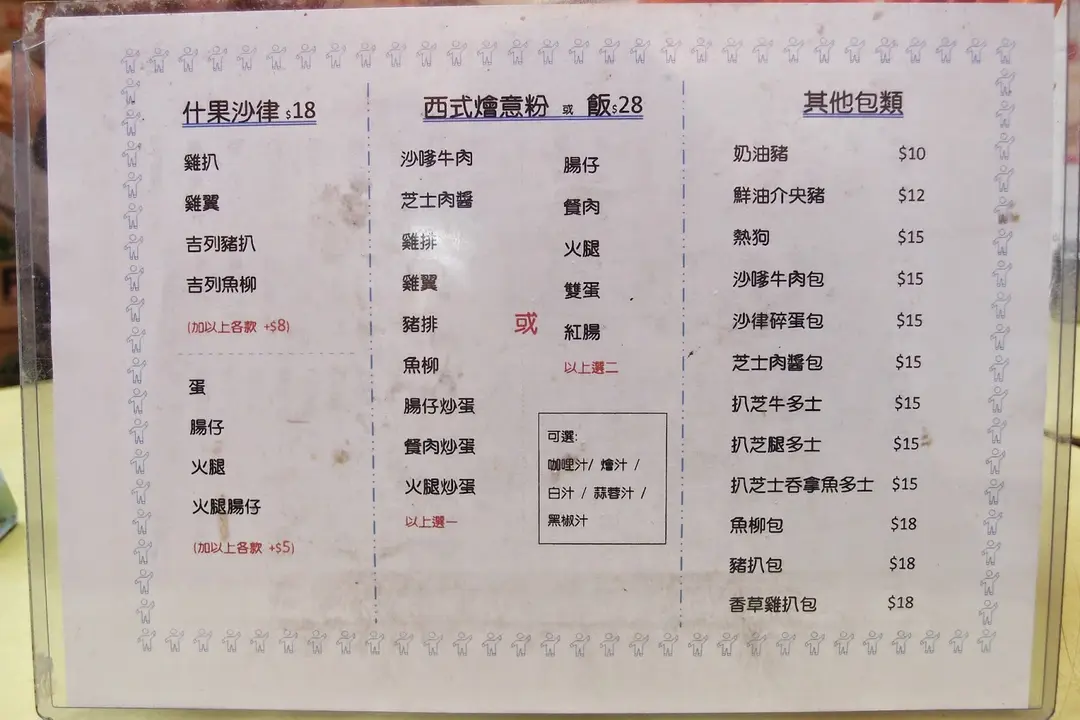 什果沙律 $18
雞扒
雞翼
吉列豬扒
吉列魚柳
(加以上各款 +$8)
蛋
腸仔
火腿
火腿腸仔
(加以上各款 +$5)
西式燴意粉 或 飯$28
沙嗲牛肉
芝士肉醬
雞排
雞翼
豬排
魚柳
腸仔炒蛋
餐肉炒蛋
火腿炒蛋
以上選一
或
腸仔
餐肉
火腿
雙蛋
紅腸
以上選二
可選:
咖哩汁/ 燴汁 /
白汁 / 蒜蓉汁 /
黑椒汁
其他包類
奶油豬 $10
鮮油介央豬 $12
熱狗 $15
沙嗲牛肉包 $15
沙律碎蛋包 $15
芝士肉醬包 $15
扒芝牛多士 $15
扒芝腿多士 $15
扒芝士吞拿魚多士 $15
魚柳包 $18
豬扒包 $18
香草雞扒包 $18